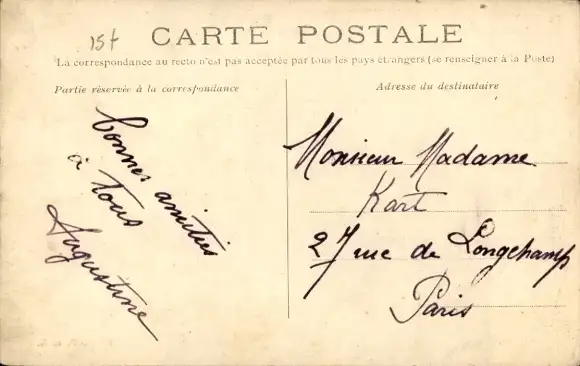 15t
CARTE POSTALE
La correspondance au recto n'est pas acceptée par tous les pays étrangers (se renseigner à la Poste)
Partie réservée à la correspondance
Adresse du destinataire
Bonnes amitiés
à Tous
Augustine
Monsieur Madame
Kart
27 rue de Longchamp
Paris